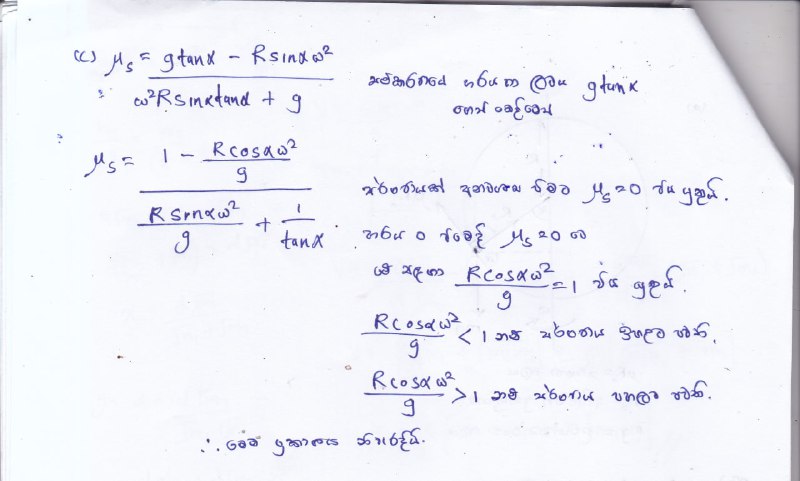 (c) μₛ = (g tanα − R sinα ω²) / (ω² R sinα tanα + g) සමීකරණයේ හරය හා ලවය g tanα
ගෙන් බෙදීමෙන්
μₛ = (1 − R cosα ω²/g) / (R sinα ω²/g + 1/tanα)
ඝර්ෂණයක් අනවශ්‍ය වීමට μₛ = 0 විය යුතුයි.
0 μₛ = 0
මේ සඳහා R cosα ω²/g = 1 විය යුතුයි.
R cosα ω²/g < 1 නම් ඝර්ෂණය ඉහළට පවතී.
R cosα ω²/g > 1 නම් ඝර්ෂණය පහළට පවතී.
∴ මෙම ප්‍රකාශය නිවැරදියි.